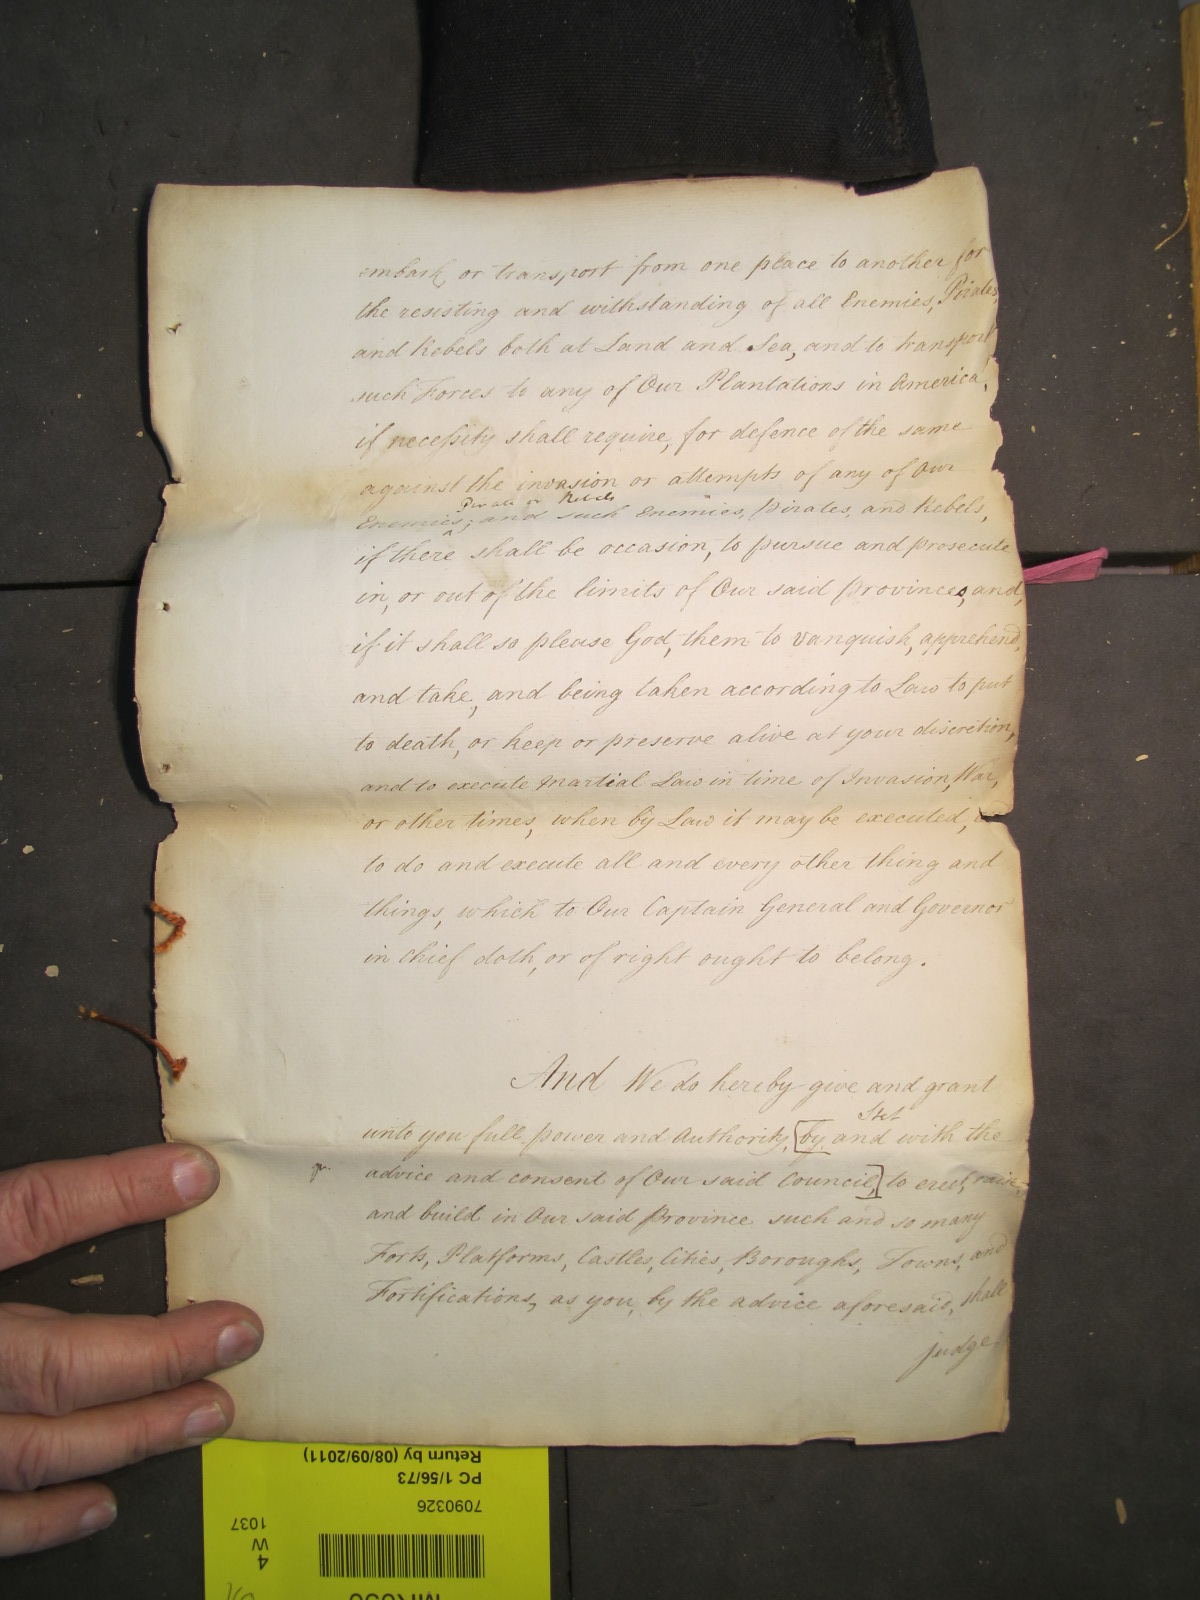 embark, or transport from one place to another for
the resisting and withstanding of all Enemies, Pirates,
and Rebels both at Land and Sea, and to transport
such Forces to any of Our Plantations in America,
if necessity shall require, for defence of the same
against the invasion or attempts of any of Our
Pirates or Rebels
Enemies; and such Enemies, Pirates, and Rebels,
^
if there shall be occasion, to pursue and prosecute
in, or out of the limits of Our said Province, and,
if it shall so please God, them to vanquish, apprehend,
and take, and being taken according to Law to put
to death, or keep or preserve alive at your discretion,
and to execute Martial Law in time of Invasion, War,
or other times, when by Law it may be executed,
to do and execute all and every other thing and
things, which to Our Captain General and Governor
in chief doth, or of right ought to belong.
And We do hereby give and grant
Stet
unto you full power and Authority, [by and with the
advice and consent of Our said Council,] to erect, raise,
and build in Our said Province such and so many
Forts, Platforms, Castles, Cities, Boroughs, Towns, and
Fortifications, as you, by the advice aforesaid, shall
judge
Return by (08/09/2011)
PC 1/56/73
7090326
1037
W
4